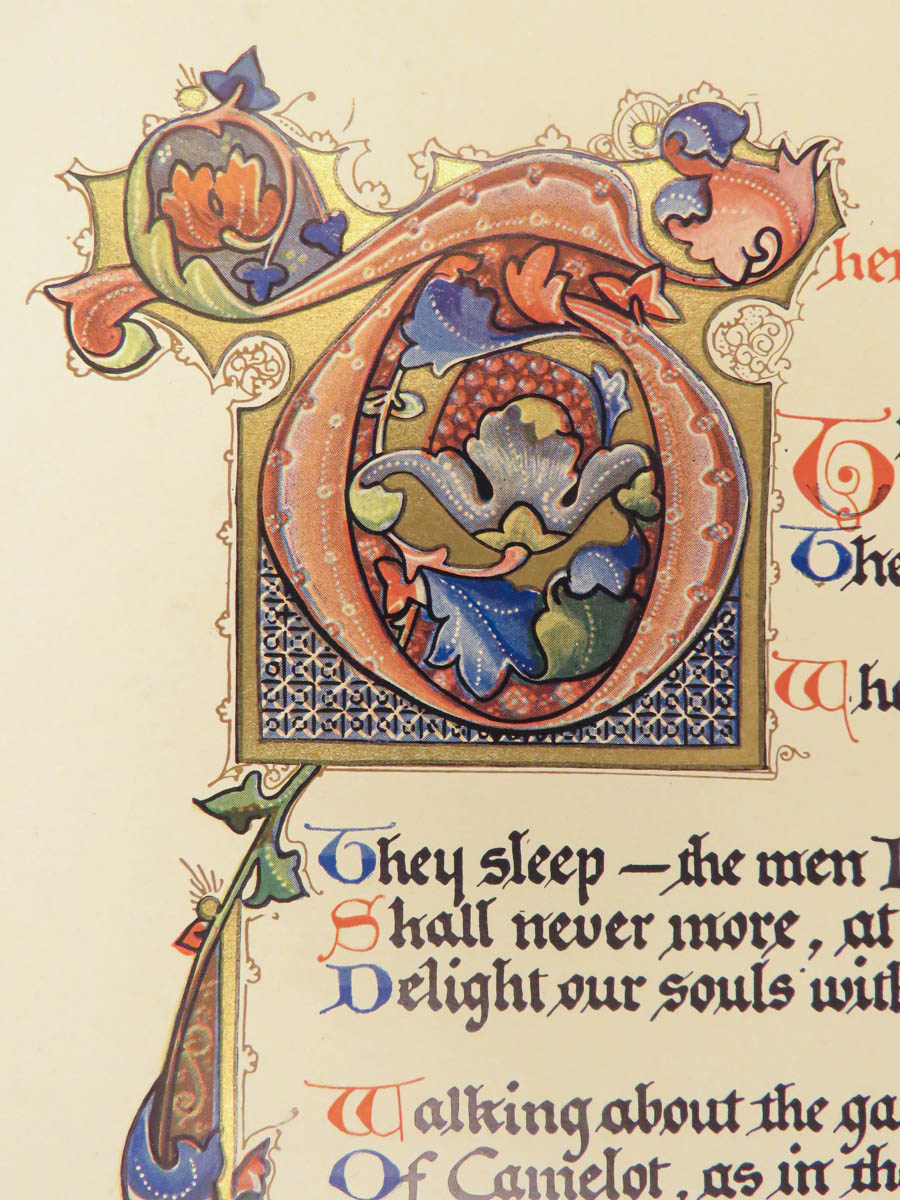 T
her
T
The
Who
They sleep — the men I
Shall never more, at
Delight our souls with
Walking about the ga
Of Camelot, as in the